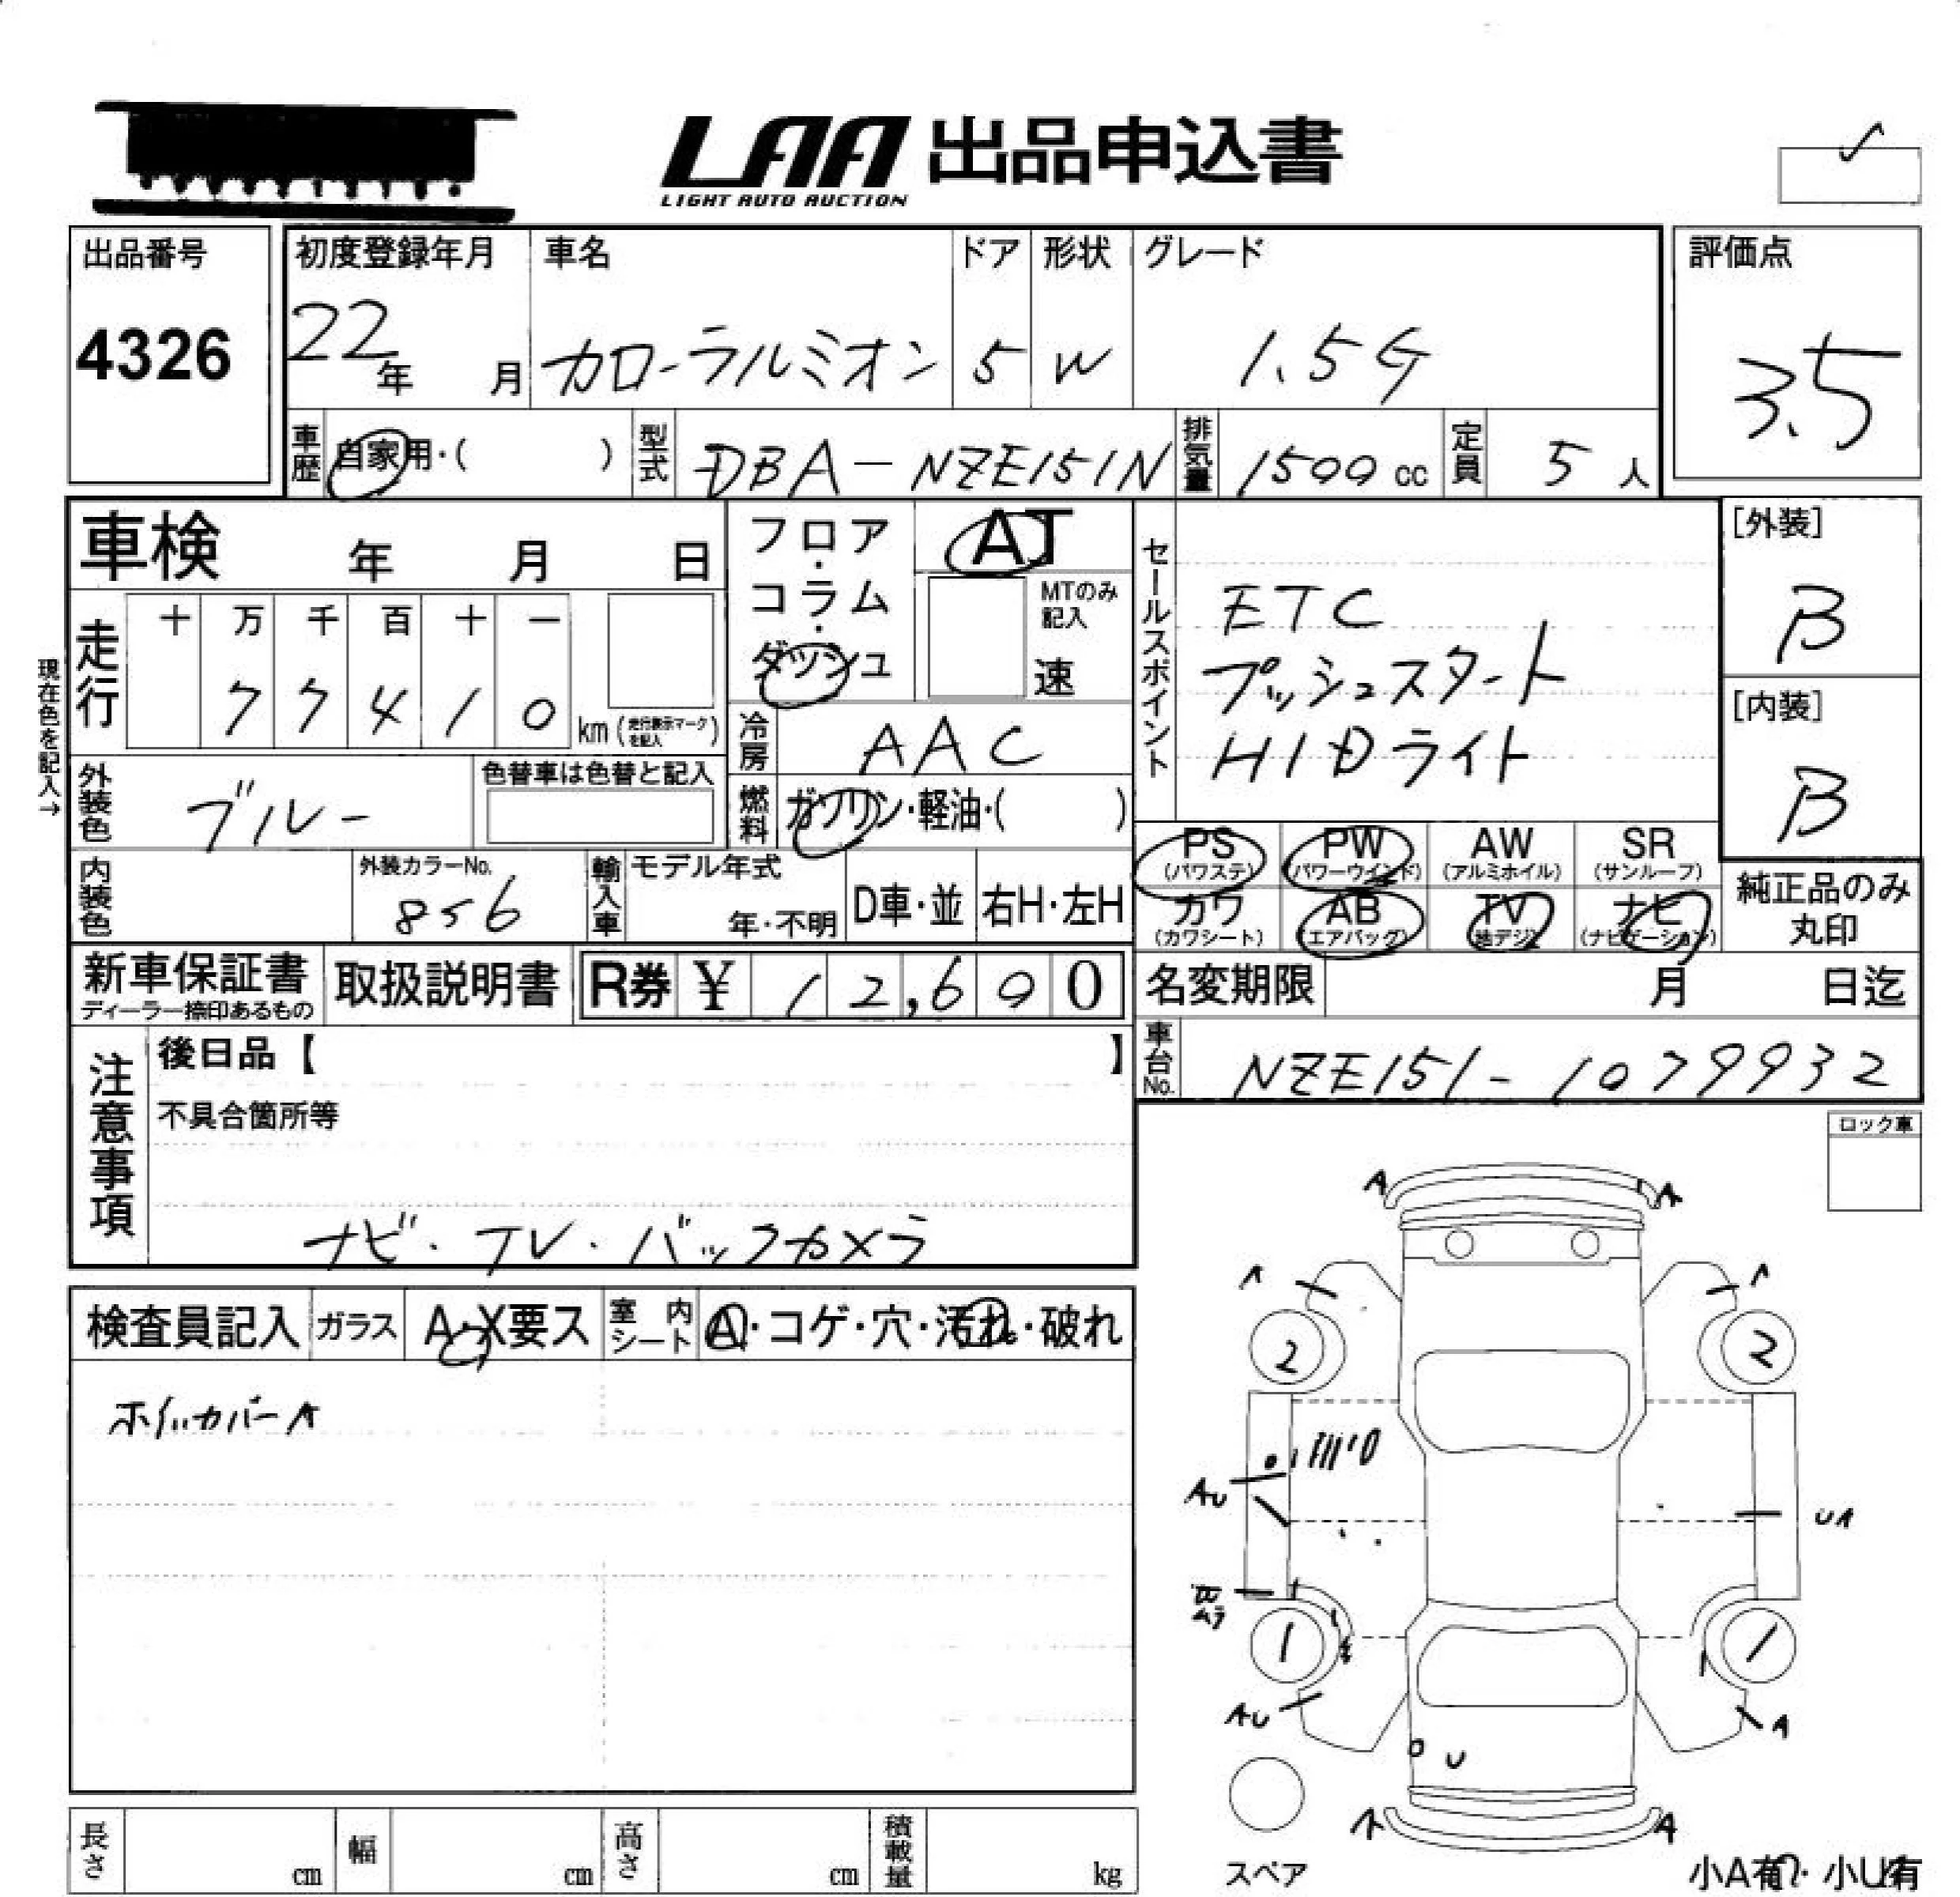 LAA 出品申込書
LIGHT AUTO AUCTION
出品番号
4326
初度登録年月
22年 月
車名
カローラルミオン
ドア
5
形状
W
グレード
1.5G
評価点
3.5
車歴 自家用・( )
型式 DBA-NZE151N
排気量 1500 cc
定員 5 人
車検 年 月 日
フロア・コラム・ダッシュ
AT
MTのみ記入
速
セールスポイント
ETC
プッシュスタート
HIDライト
[外装]
B
[内装]
B
現在色を記入→
走行
十 万 千 百 十 一
7 7 4 1 0 km (走行表示マークを記入)
冷房 AAC
外装色 ブルー
色替車は色替と記入
燃料 ガソリン・軽油・( )
内装色
外装カラーNo.
856
輸入車
モデル年式
年・不明
D車・並
右H・左H
PS (パワステ)
PW (パワーウインド)
AW (アルミホイル)
SR (サンルーフ)
カワ (カワシート)
AB (エアバッグ)
TV (地デジ)
ナビ (ナビゲーション)
純正品のみ
丸印
新車保証書
ディーラー捺印あるもの
取扱説明書
R券 ¥ 12,690
名変期限 月 日迄
車台No. NZE151-1079932
注意事項
後日品【 】
不具合箇所等
ナビ・TV・バックカメラ
ロック車
検査員記入
ガラス
A・X要ス
室内シート
A・コゲ・穴・汚れ・破れ
ホイルカバーA
A A
A A
2 2
AU
UA
1 1
AU
A
U
A A
スペア
小A有・小U有
長さ cm
幅 cm
高さ cm
積載量 kg